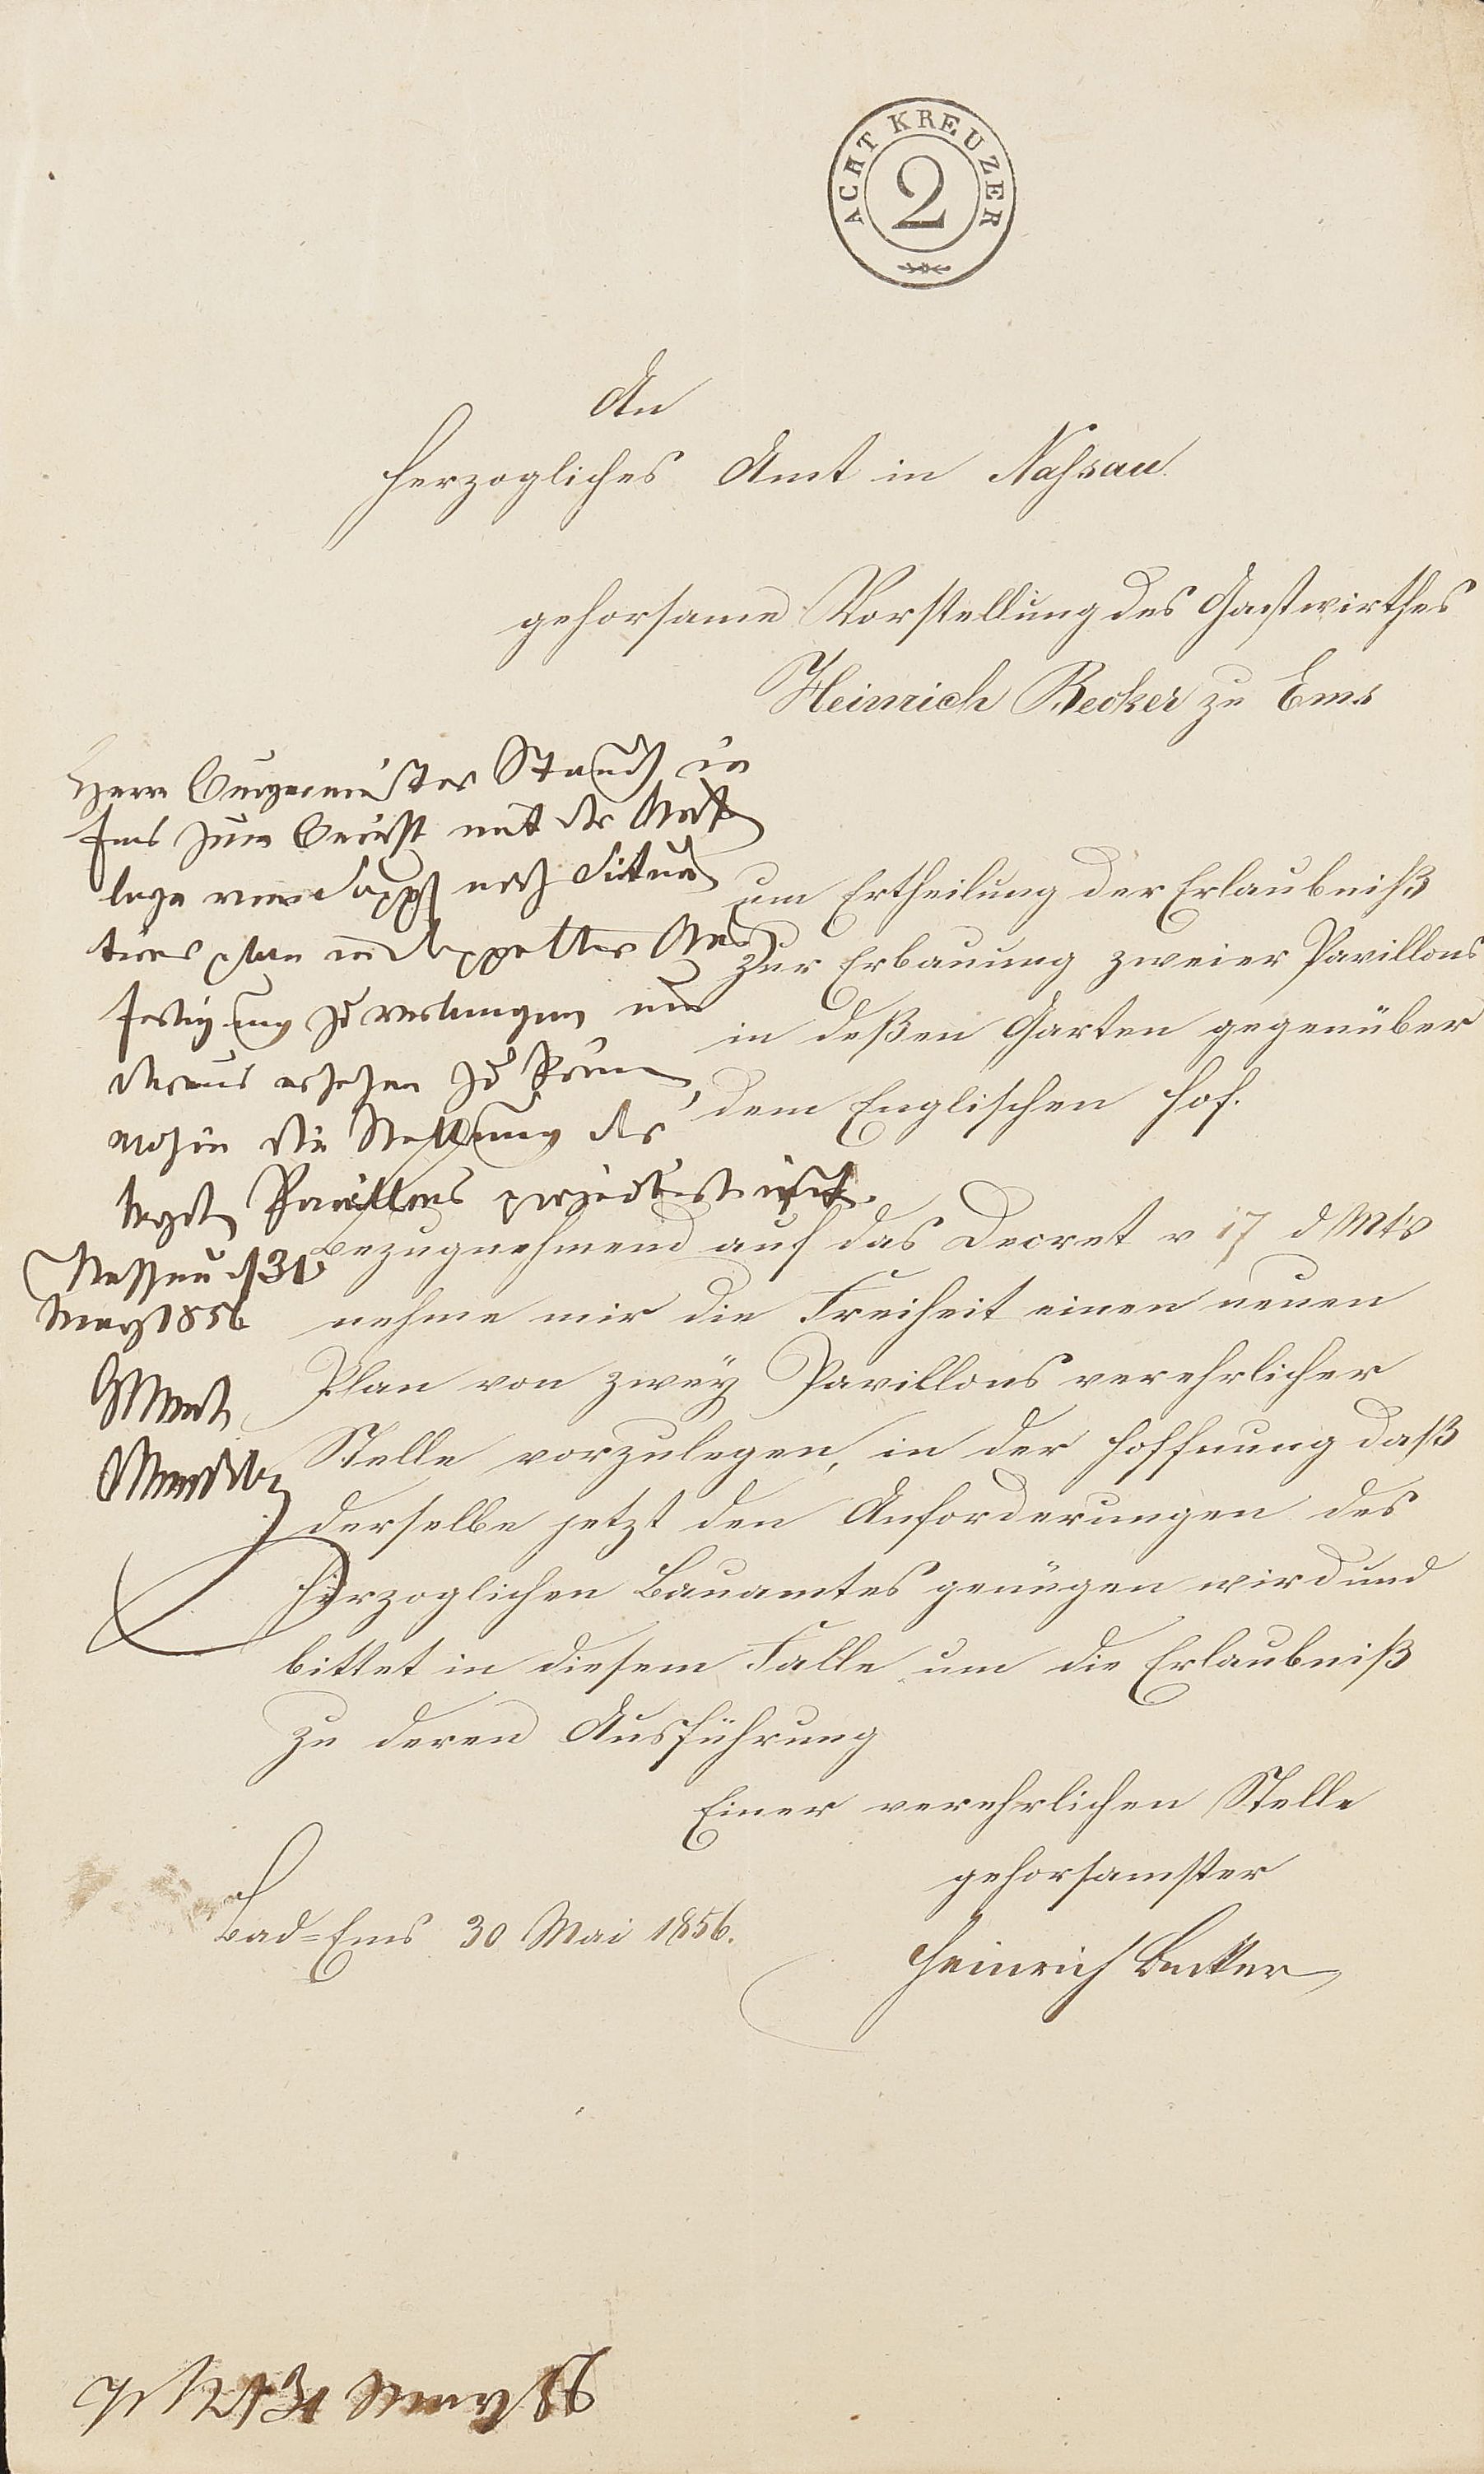 ACHT KREUZER
2
An
Herzogliches Amt in Nassau
gehorsame Vorstellung des Gastwirthes
Heinrich Becker zu Ems
um Ertheilung der Erlaubniß
zur Erbauung zweier Pavillons
in deßen Garten gegenüber
dem Englischen Hof.
Herrn Bürgermeister in
Ems zum Bericht mit der
lage eines Situa
tionsplan in doppelter Aus
fertigung zu verlangen um
daraus ersehen zu können,
wohin die Stellung der
Pavillons projectirt ist.
Nassau d 31
May 1856
Bezugnehmend auf das Decret v 17 d Mts
nehme mir die Freiheit einen neuen
Plan von zwey Pavillons verehrlicher
Stelle vorzulegen, in der Hoffnung daß
derselbe jetzt den Anforderungen des
Herzoglichen Bauamtes genügen wird und
bittet in diesem Falle um die Erlaubniß
zu deren Ausführung
Einer verehrlichen Stelle
gehorsamster
Bad=Ems 30 Mai 1856.
Heinrich Becker
31 May 56